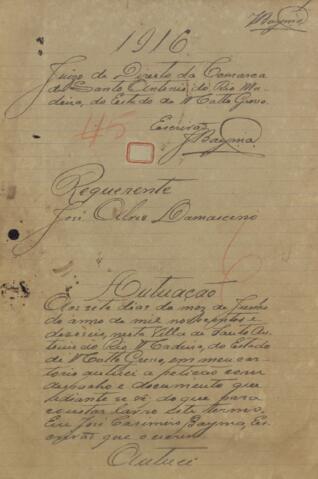 Bayma
1916.
Juizo de Direito da Comarca
de Santo Antonio do Rio Ma-
deira, do Estado de Matto Grosso.
45
Escrivão
J Bayma
Requerente
José Alves Damasceno
Autuação
Aos sete dias do mez de Junho
do anno de mil novecentos e
deseseis, nesta Villa de Santo An-
tonio do Rio Madeira, do Estado
de Matto Grosso, em meu car-
torio autuei a petição com
despacho e documento que
adiante se vê, do que para
constar lavro este termo,
Eu José Casimiro Bayma, Es-
crivão que o escrevi.
Autuei